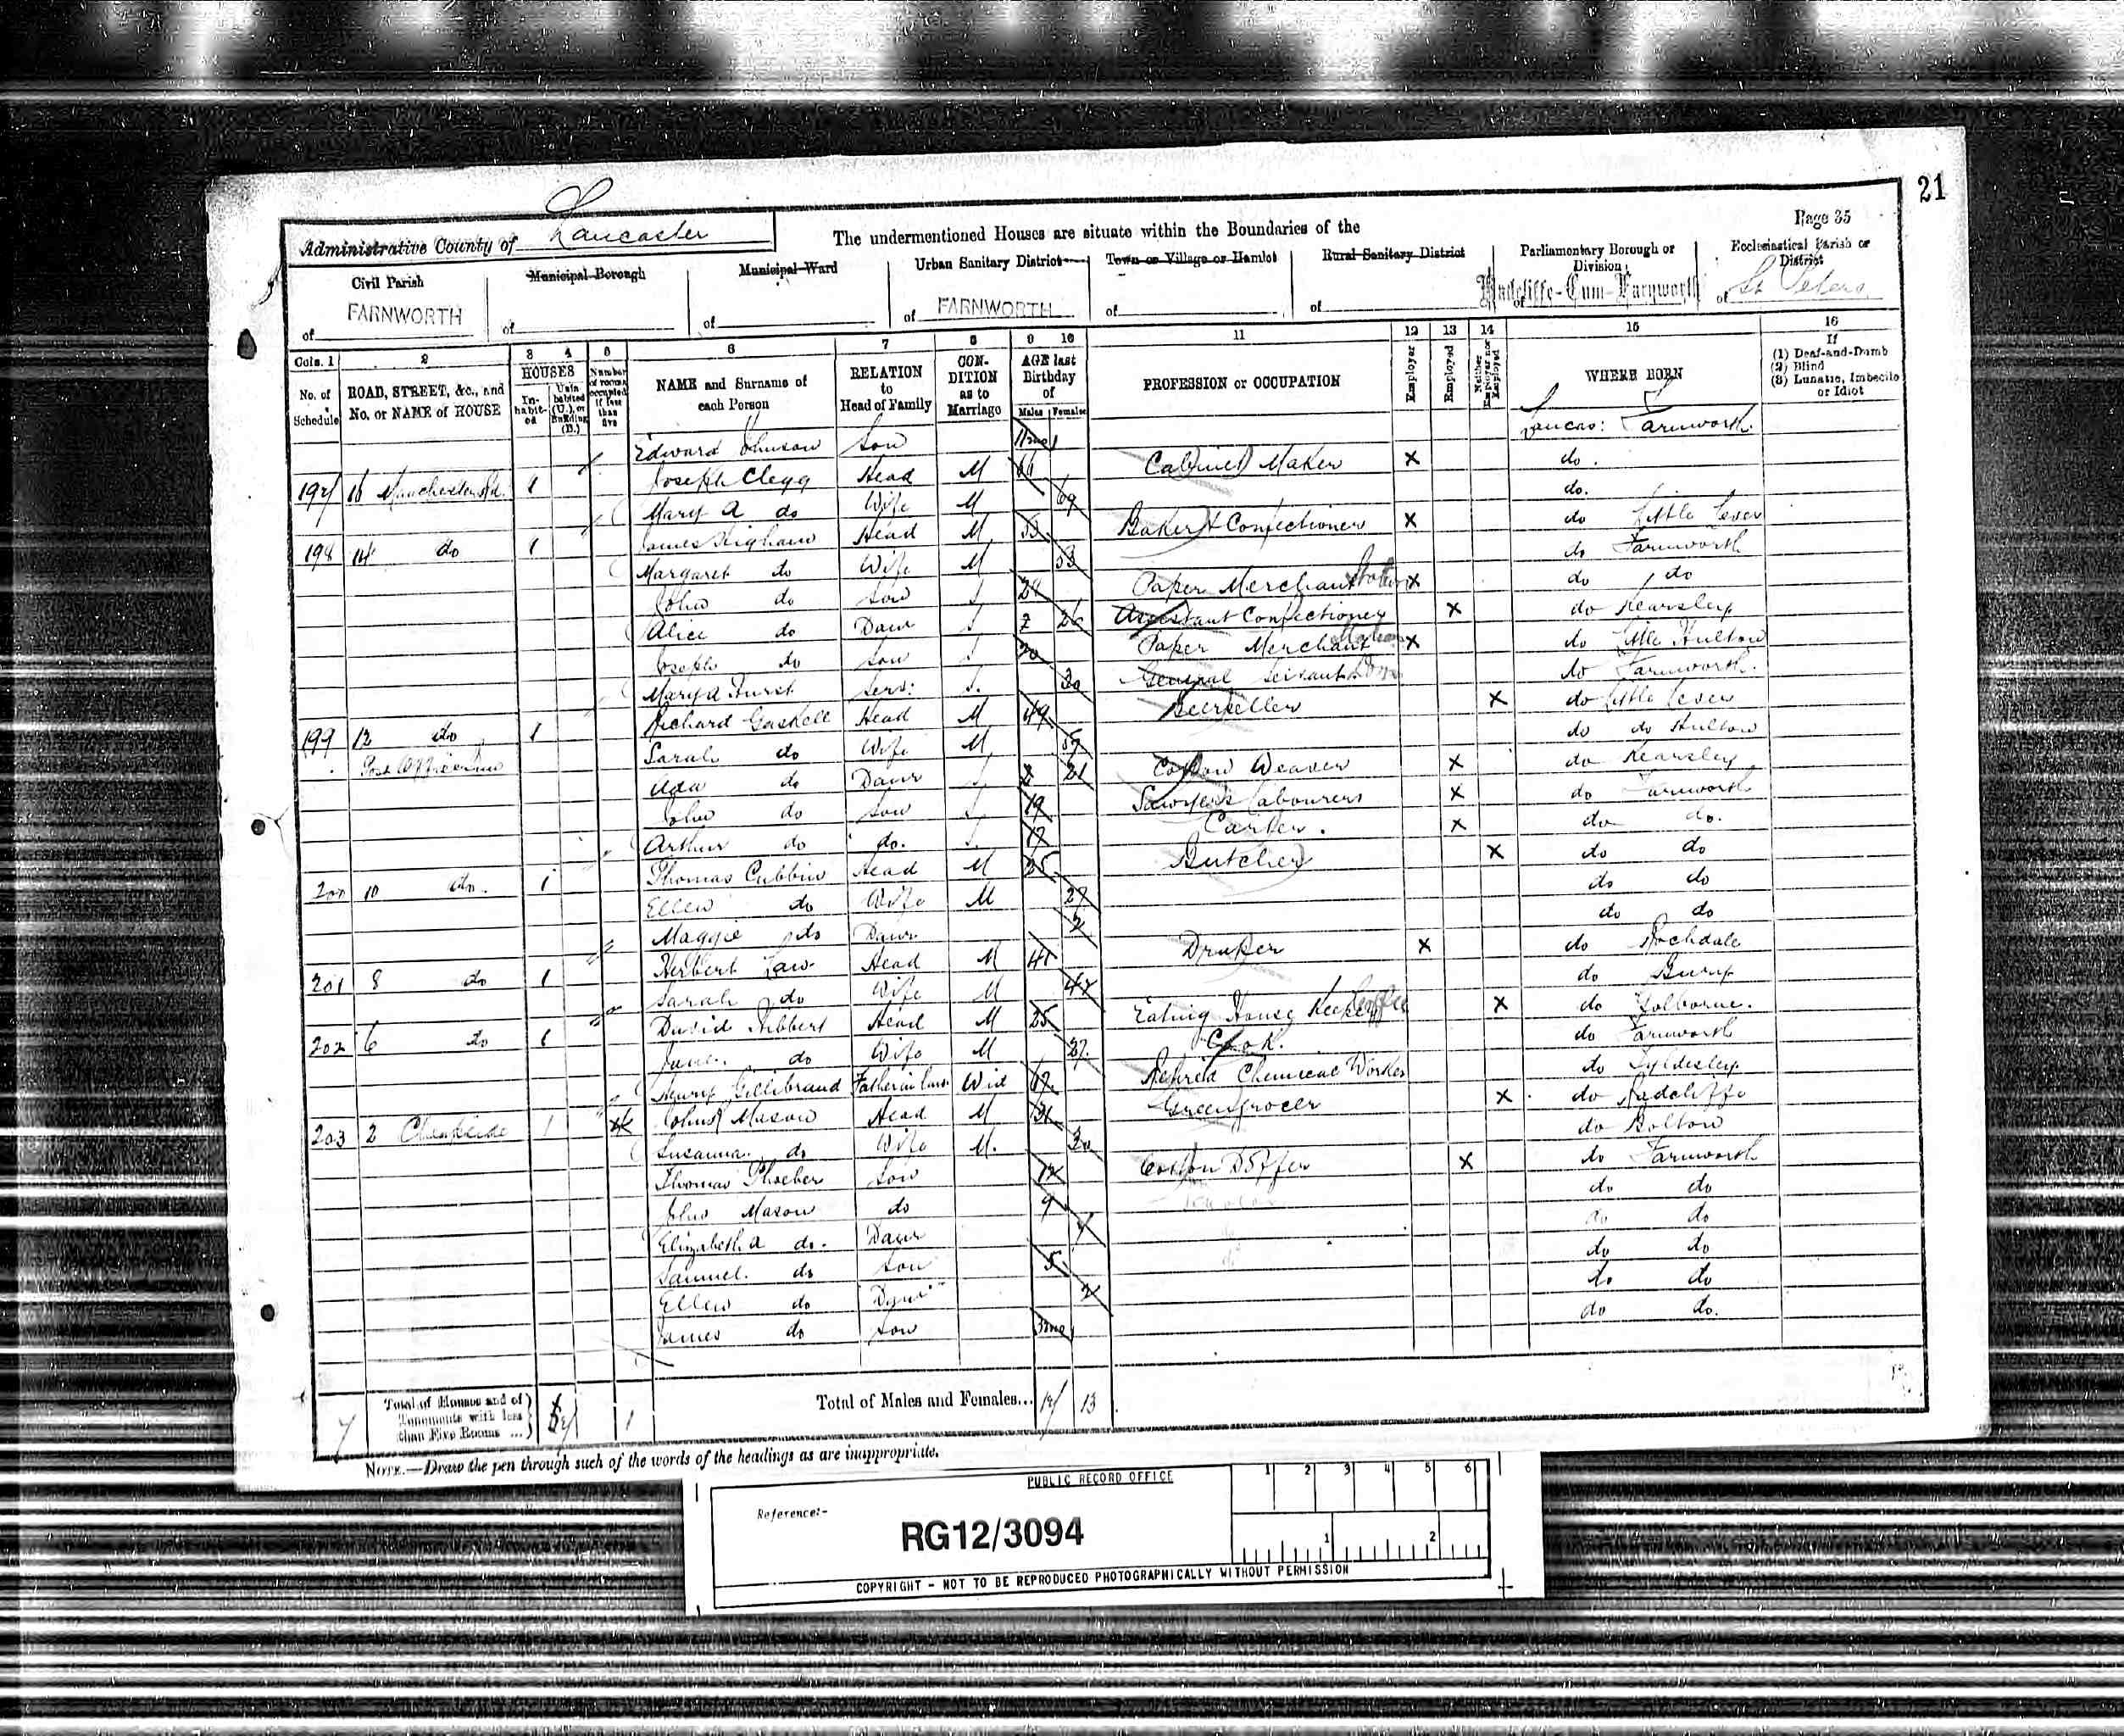 21
Page 35
Administrative County of Lancaster
The undermentioned Houses are situate within the Boundaries of the
Civil Parish
of FARNWORTH
Municipal Borough
of
Municipal Ward
of
Urban Sanitary District
of FARNWORTH
Town or Village or Hamlet
of
Rural Sanitary District
of
Parliamentary Borough or Division
of Radcliffe-Cum-Farnworth
Ecclesiastical Parish or District
of St Peters
Cols. 1 2 3 4 5 6 7 8 9 10 11 12 13 14 15 16
No. of Schedule
ROAD, STREET, &c., and No. or NAME of HOUSE
HOUSES
In-habit-ed
Unin-habited (U.), or Building (B.)
Number of rooms occupied if less than five
NAME and Surname of each Person
RELATION to Head of Family
CON-DITION as to Marriage
AGE last Birthday of
Males Females
PROFESSION or OCCUPATION
Employer
Employed
Neither Employer nor Employed
WHERE BORN
If
(1) Deaf-and-Dumb
(2) Blind
(3) Lunatic, Imbecile or Idiot
Edward Johnson Son 11mo Lancas: Farnworth
197 16 Manchester Rd. 1 Joseph Clegg Head M 66 Cabinet Maker X do.
Mary A do Wife M 69 do.
198 14 do 1 James Higham Head M 53 Baker & Confectioner X do Little Lever
Margaret do Wife M 53 do Farnworth
John do Son S Paper Merchant X do do
Alice do Daur S 26 Assistant Confectioner X do Kearsley
Joseph do Son S 20 Paper Merchant X do Little Hulton
Mary A Hurst Serv: S. 30 General Servant Dom do Farnworth.
199 12 do 1 Richard Gaskell Head M 49 Beerseller X do Little Lever
Post Office Inn Sarah do Wife M do do Hulton
Ada do Daur S 21 Cotton Weaver X do Kearsley
John do Son S 19 Sawyer's Labourer X do Farnworth
Arthur do do. S. 17 Carter. X do do.
200 10 do. 1 Thomas Cubbin Head M 25 Butcher X do do
Ellen do Wife M 27 do do
Maggie do Daur 2 do do
201 8 do 1 Herbert Law Head M Draper X do Rochdale
Sarah do Wife M do Bury
202 6 do 1 David Hibbert Head M 25 Eating House Keeper X do Golborne.
Jane. do Wife M 27. Cook. do Farnworth
Henry Gillibrand Father in law Wid 67. Retired Chemical Worker do Tyldesley
203 2 1 4 John Mason Head M 31 Greengrocer X do Radcliffe
Susanna. do Wife M. 30 do Bolton
Thomas Son 12 Cotton Doffer X do Farnworth
John Mason do 9 Scholar do do
Elizabeth A do. Daur do do
Samuel. do Son 5 do do
Ellen do Daur 2 do do
James do Son 3mo do do.
7
Total of Houses and of Tenements with less than Five Rooms ...
1
Total of Males and Females... 18 13
NOTE.—Draw the pen through such of the words of the headings as are inappropriate.
PUBLIC RECORD OFFICE
1 2 3 4 5 6
Reference:-
RG12/3094
1 2
COPYRIGHT - NOT TO BE REPRODUCED PHOTOGRAPHICALLY WITHOUT PERMISSION